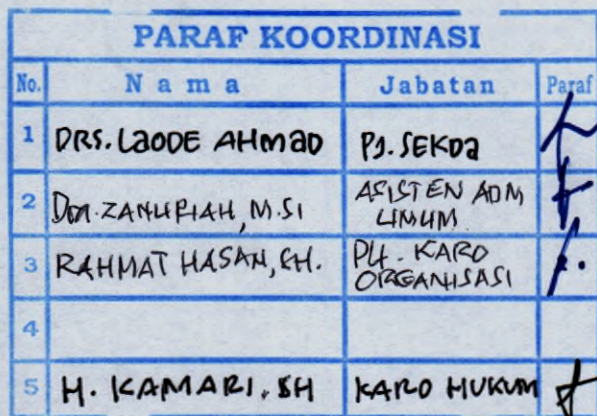 PARAF KOORDINASI
No. Nama Jabatan Paraf
1 DRS. LAODE AHMAD PJ. SEKDA
2 Dra. ZANURIAH, M.SI ASISTEN ADM UMUM
3 RAHMAT HASAN, SH. PLH. KARO ORGANISASI
4
5 H. KAMARI, SH KARO HUKUM